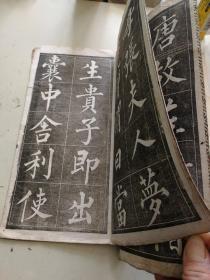 唐故
夫人夢
曰當
生貴子即出
囊中舍利使